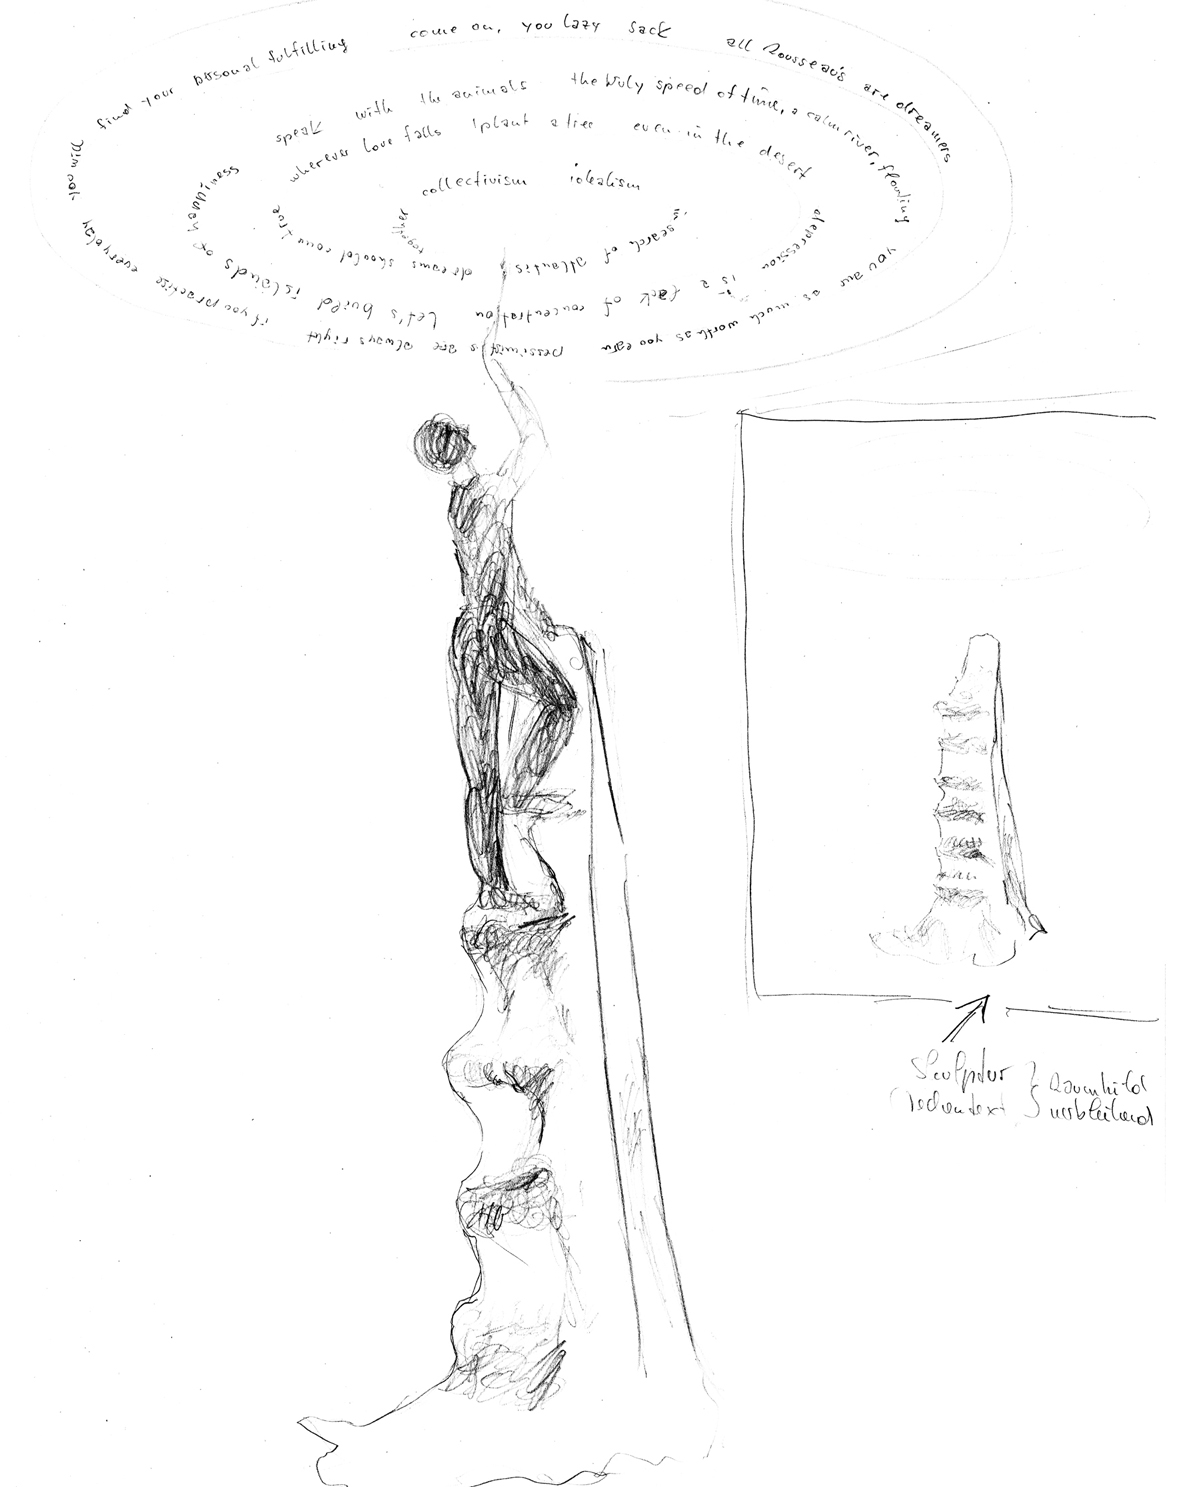 you will find your personal fulfilling come on, you lazy sack all Rousseau's are dreamers
you are as much worth as you earn pessimists are always right if you practise everyday
speak with the animals the holy speed of time, a calm river, flowing
depression is a lack of concentration Let's build islands of happiness
wherever love falls I plant a tree even in the desert
in search of atlantis dreams should come true
collectivism idealism
together
Sculptur } Raumbild
verbleibend